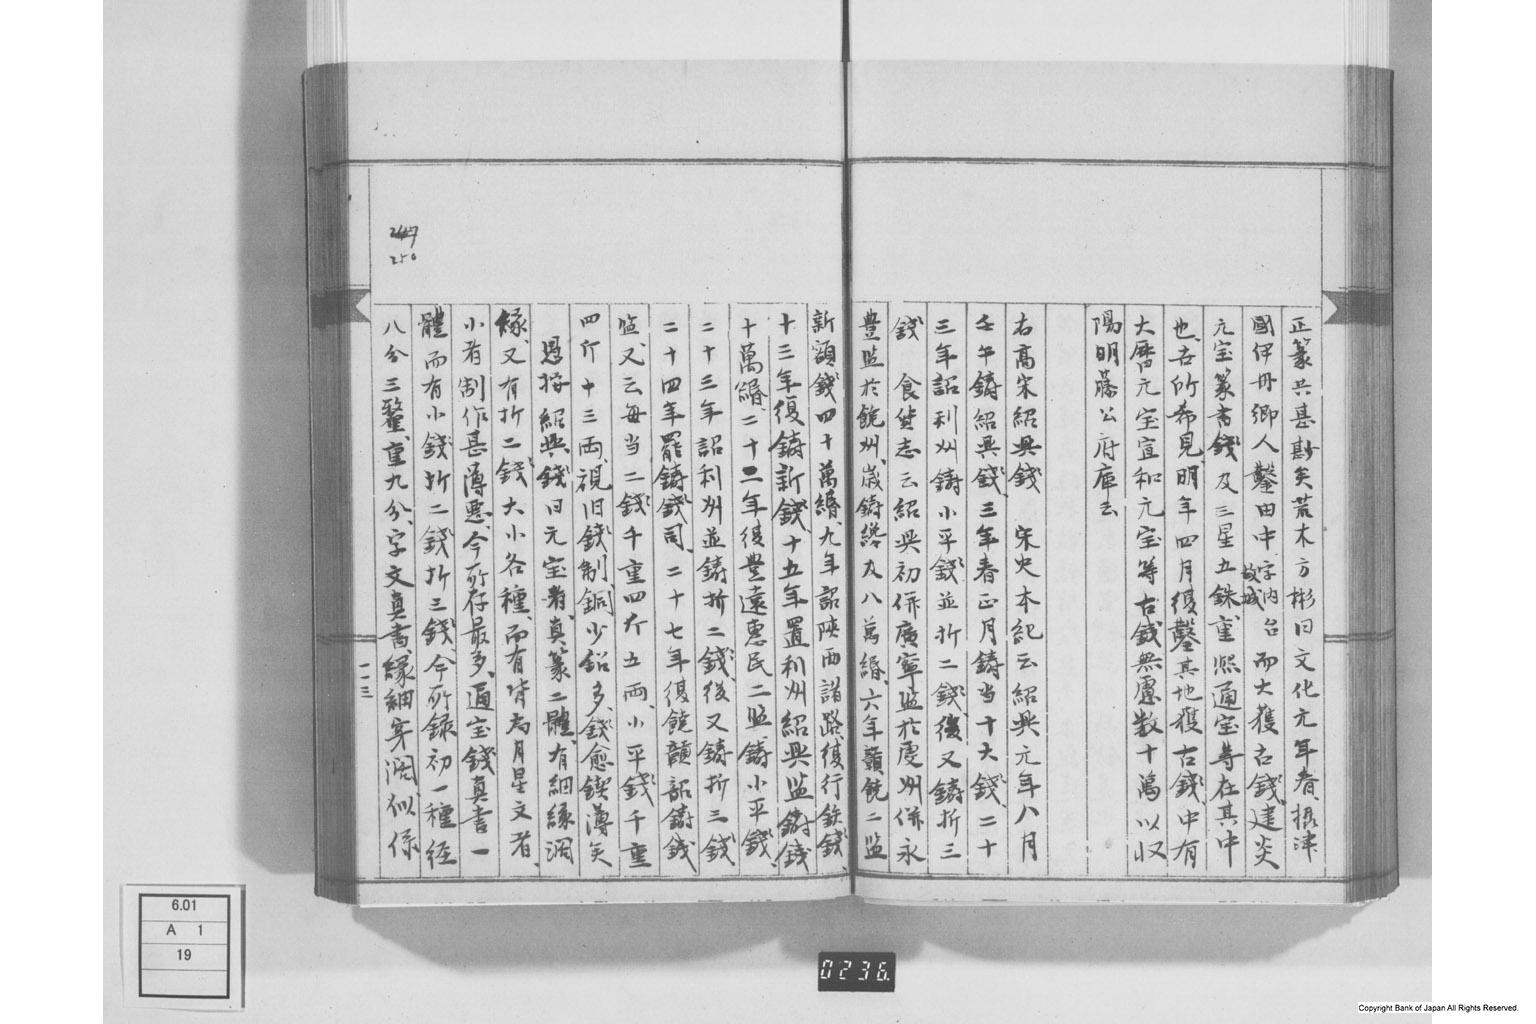 正篆共甚尠矣荒木方彬曰文化元年春攝津
國伊丹鄉人鑿田中字內台而大獲古錢建炎
故城
元宝篆書錢及三星五銖重熙通宝等在其中
也吾所希見明年四月復鑿其地獲古錢中有
大曆元宝宣和元宝等古錢無慮数十萬以收
陽明藤公府庫云
右高宋紹興錢 宋史本紀云紹興元年八月
壬午鑄紹興錢三年春正月鑄当十大錢二十
三年詔利州鑄小平錢並折二錢後又鑄折三
錢 食貨志云紹興初併廣寧監於虔州併永
豊監於饒州歲鑄纔及八萬緡六年贛饒二監
新額錢四十萬緡九年詔陝西諸路復行鉄錢
十三年復鑄新錢十五年置利州紹興監鑄錢
十萬緡二十二年復豊遠惠民二監鑄小平錢
二十三年詔利州並鑄折二錢後又鑄折三錢
二十四年罷鑄錢司二十七年復饒贛詔鑄錢
監又云每当二錢千重四斤五両小平錢千重
四斤十三両視旧錢制銅少鉛多錢愈鍥薄矣
愚按紹興錢曰元宝者真篆二體有細緣濶
緣又有折二錢大小各種而有背为月星文者
小者制作甚薄悪今所存最多通宝錢真書一
體而有小錢折二錢折三錢今所錄初一種径
八分三釐重九分字文真書緣細穿濶似係
二一三
247
250
6.01
A 1
19
0236
Copyright Bank of Japan All Rights Reserved.